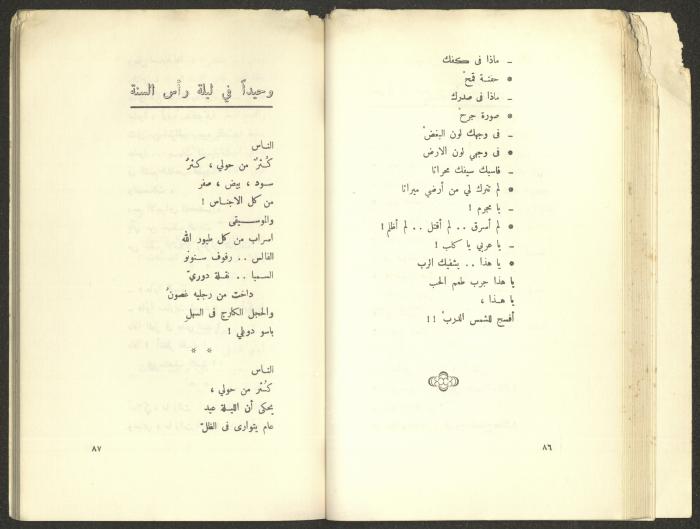 ـ ماذا فى كفك
• حفنة قمحْ
ـ ماذا فى صدرك
• صورة جرحْ
ـ فى وجهك لون البغضْ
• فى وجهي لون الارض
ـ فاسبك سيفك محراثا
• لم تترك لي من أرضي ميراثا
ـ يا مجرم !
• لم أسرق .. لم أقتل .. لم أظلم !
ـ يا عربي يا كلب !
• يا هذا .. يشفيك الرب
يا هذا جرب طعم الحب
يا هـذا ،
أفسح للشمس الدربْ !!
٨٦
وحيداً في ليلة رأس السنة
الناس
كُثرٌ من حولي ، كثرٌ
سود ، بيض ، صفر
من كل الاجناس !
والموسـيقى
اسراب من كل طيور الله
الفالس .. رفوف سنونو
السمبا .. نقلة دوريّ
داخت من رجليه غصونٌ
والحجل الكارج فى السهلِ
باسو دوبلي !
* *
الناس
كُثر من حولي ،
يحكى أن الليلة عيد
عام يتوارى فى الظلّ
٨٧